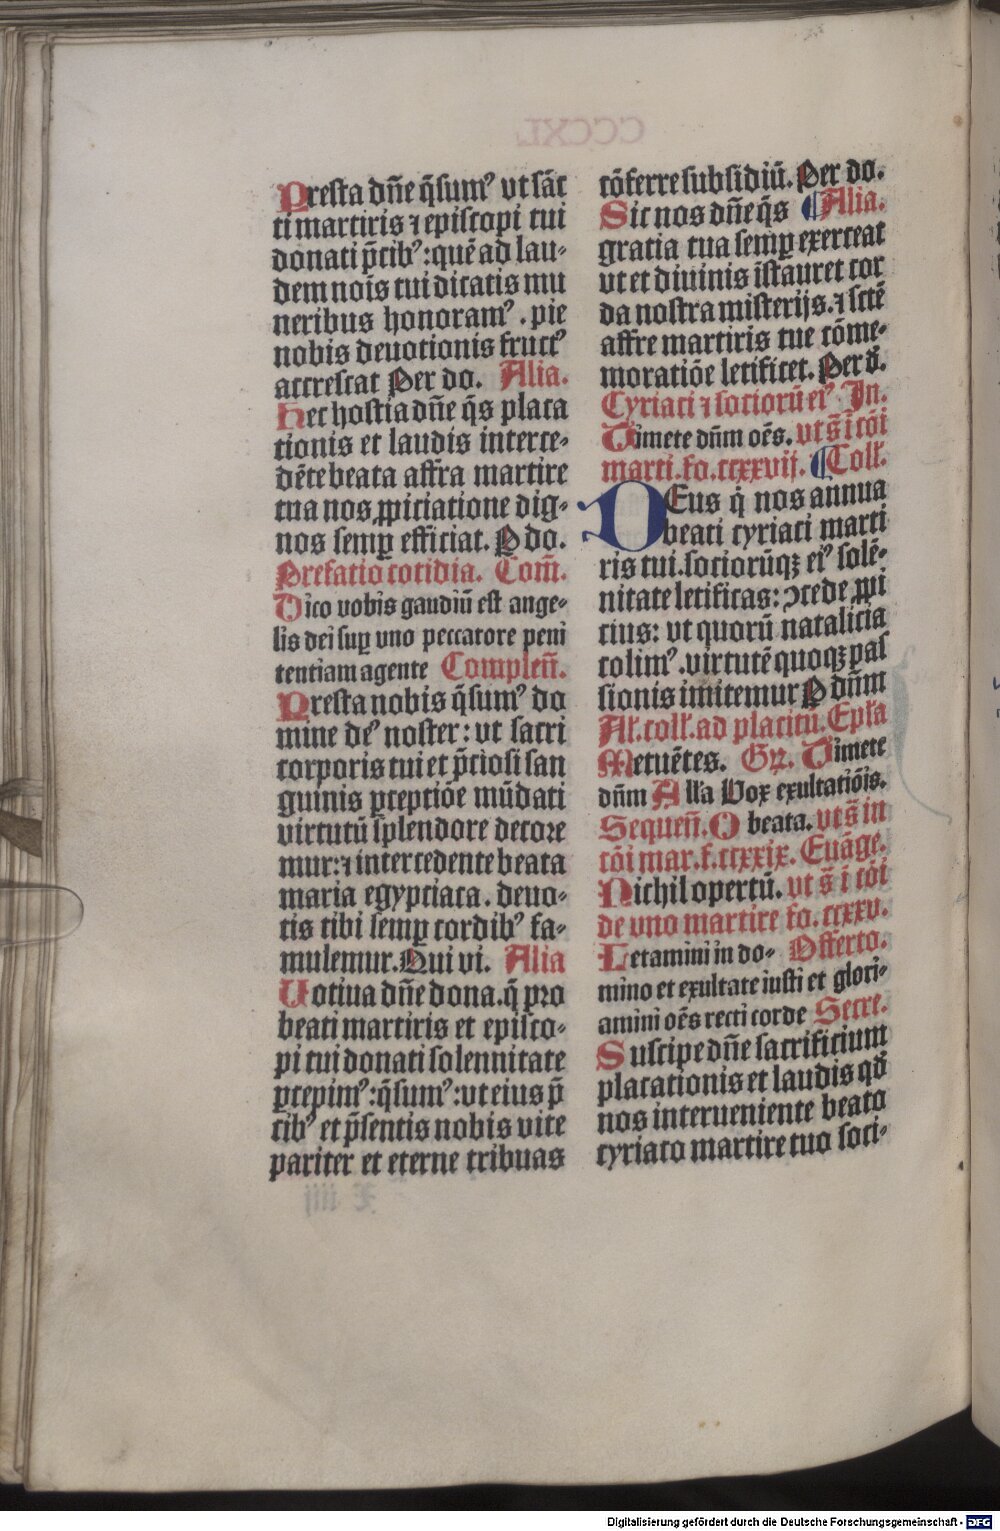 Presta dñe q̄sumꝰ vt sāc
ti martiris ⁊ episcopi tui
donati p̄cibꝰ: quē ad lau⸗
dem nois̄ tui dicatis mu
neribus honoramꝰ. pie
nobis deuotionis fructꝰ
accrescat Per do. Alia.
Hec hostia dñe q̄s placa
tionis et laudis interce⸗
dēte beata affra martire
tua nos ꝓpiciatione dig⸗
nos semꝑ efficiat. P do.
Prefatio cotidia. Com̄.
Dico vobis gaudiū est ange⸗
lis dei suꝑ vno peccatore peni
tentiam agente Compleñ.
Presta nobis q̄sumꝰ do
mine deꝰ noster: vt sacri
corporis tui et p̄ciosi san
guinis ꝑceptiōe mūdati
virtutū splendore decore
mur: ⁊ intercedente beata
maria egyptiaca. deuo⸗
tis tibi semꝑ cordibꝰ fa⸗
mulemur. Qui vi. Alia
Uotiua dñe dona. q̄ pro
beati martiris et episco⸗
pi tui donati solennitate
ꝑcepimꝰ: q̄sumꝰ: vt eius p̄
cibꝰ et p̄sentis nobis vite
pariter et eterne tribuas
cōferre subsidiū. Per do.
Sic nos dñe q̄s ¶ Alia.
gratia tua semꝑ exerceat
vt et diuinis īstauret cor
da nostra misterijs. ⁊ sctē
affre martiris tue cōme⸗
moratiōe letificet. Per d̄.
Cyriaci ⁊ sociorū eiꝰ In.
Timete dn̄m oēs. vt s̄ i cōi
marti. fo. ccxxvij. ¶ Coll.
DEus q̄ nos annua
beati cyriaci marti
ris tui. sociorūqꝫ eiꝰ solē⸗
nitate letificas: ꝯcede ꝓpi
cius: vt quorū natalicia
colimꝰ. virtutē quoqꝫ pas
sionis imitemur P dn̄m
Al. coll. ad placitū. Epl̄a
Metuētes. Gr̄. Timete
dn̄m Alla Vox exultatiōis.
Sequeñ. O beata. vt s̄ in
cōi mar. f. ccxxix. Euāge.
Nichil opertū. vt s̄ ī cōi
de vno martire fo. ccxxv.
Letamini in do⸗ Offerto.
mino et exultate iusti et glori⸗
amini oēs recti corde Secre.
Suscipe dñe sacrificium
placationis et laudis qd̄
nos interueniente beato
cyriaco martire tuo soci⸗
Digitalisierung gefördert durch die Deutsche Forschungsgemeinschaft - DFG